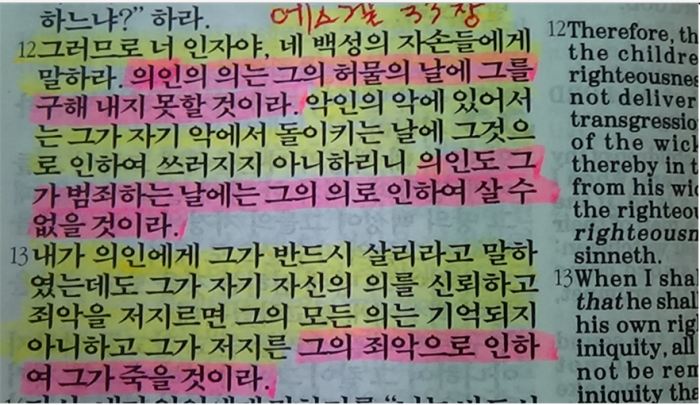 하느냐?” 하라. 에스겔 33장
12그러므로 너 인자야, 네 백성의 자손들에게
말하라. 의인의 의는 그의 허물의 날에 그를
구해 내지 못할 것이라. 악인의 악에 있어서
는 그가 자기 악에서 돌이키는 날에 그것으
로 인하여 쓰러지지 아니하리니 의인도 그
가 범죄하는 날에는 그의 의로 인하여 살 수
없을 것이라.
13내가 의인에게 그가 반드시 살리라고 말하
였는데도 그가 자기 자신의 의를 신뢰하고
죄악을 저지르면 그의 모든 의는 기억되지
아니하고 그가 저지른 그의 죄악으로 인하
여 그가 죽을 것이라.
12Therefore, th
the childre
righteousne
not deliver
transgressio
of the wick
thereby in t
from his wi
the righteo
righteousn
sinneth.
13When I sha
that he sha
his own rig
iniquity, all
not be rem
iniquity tha